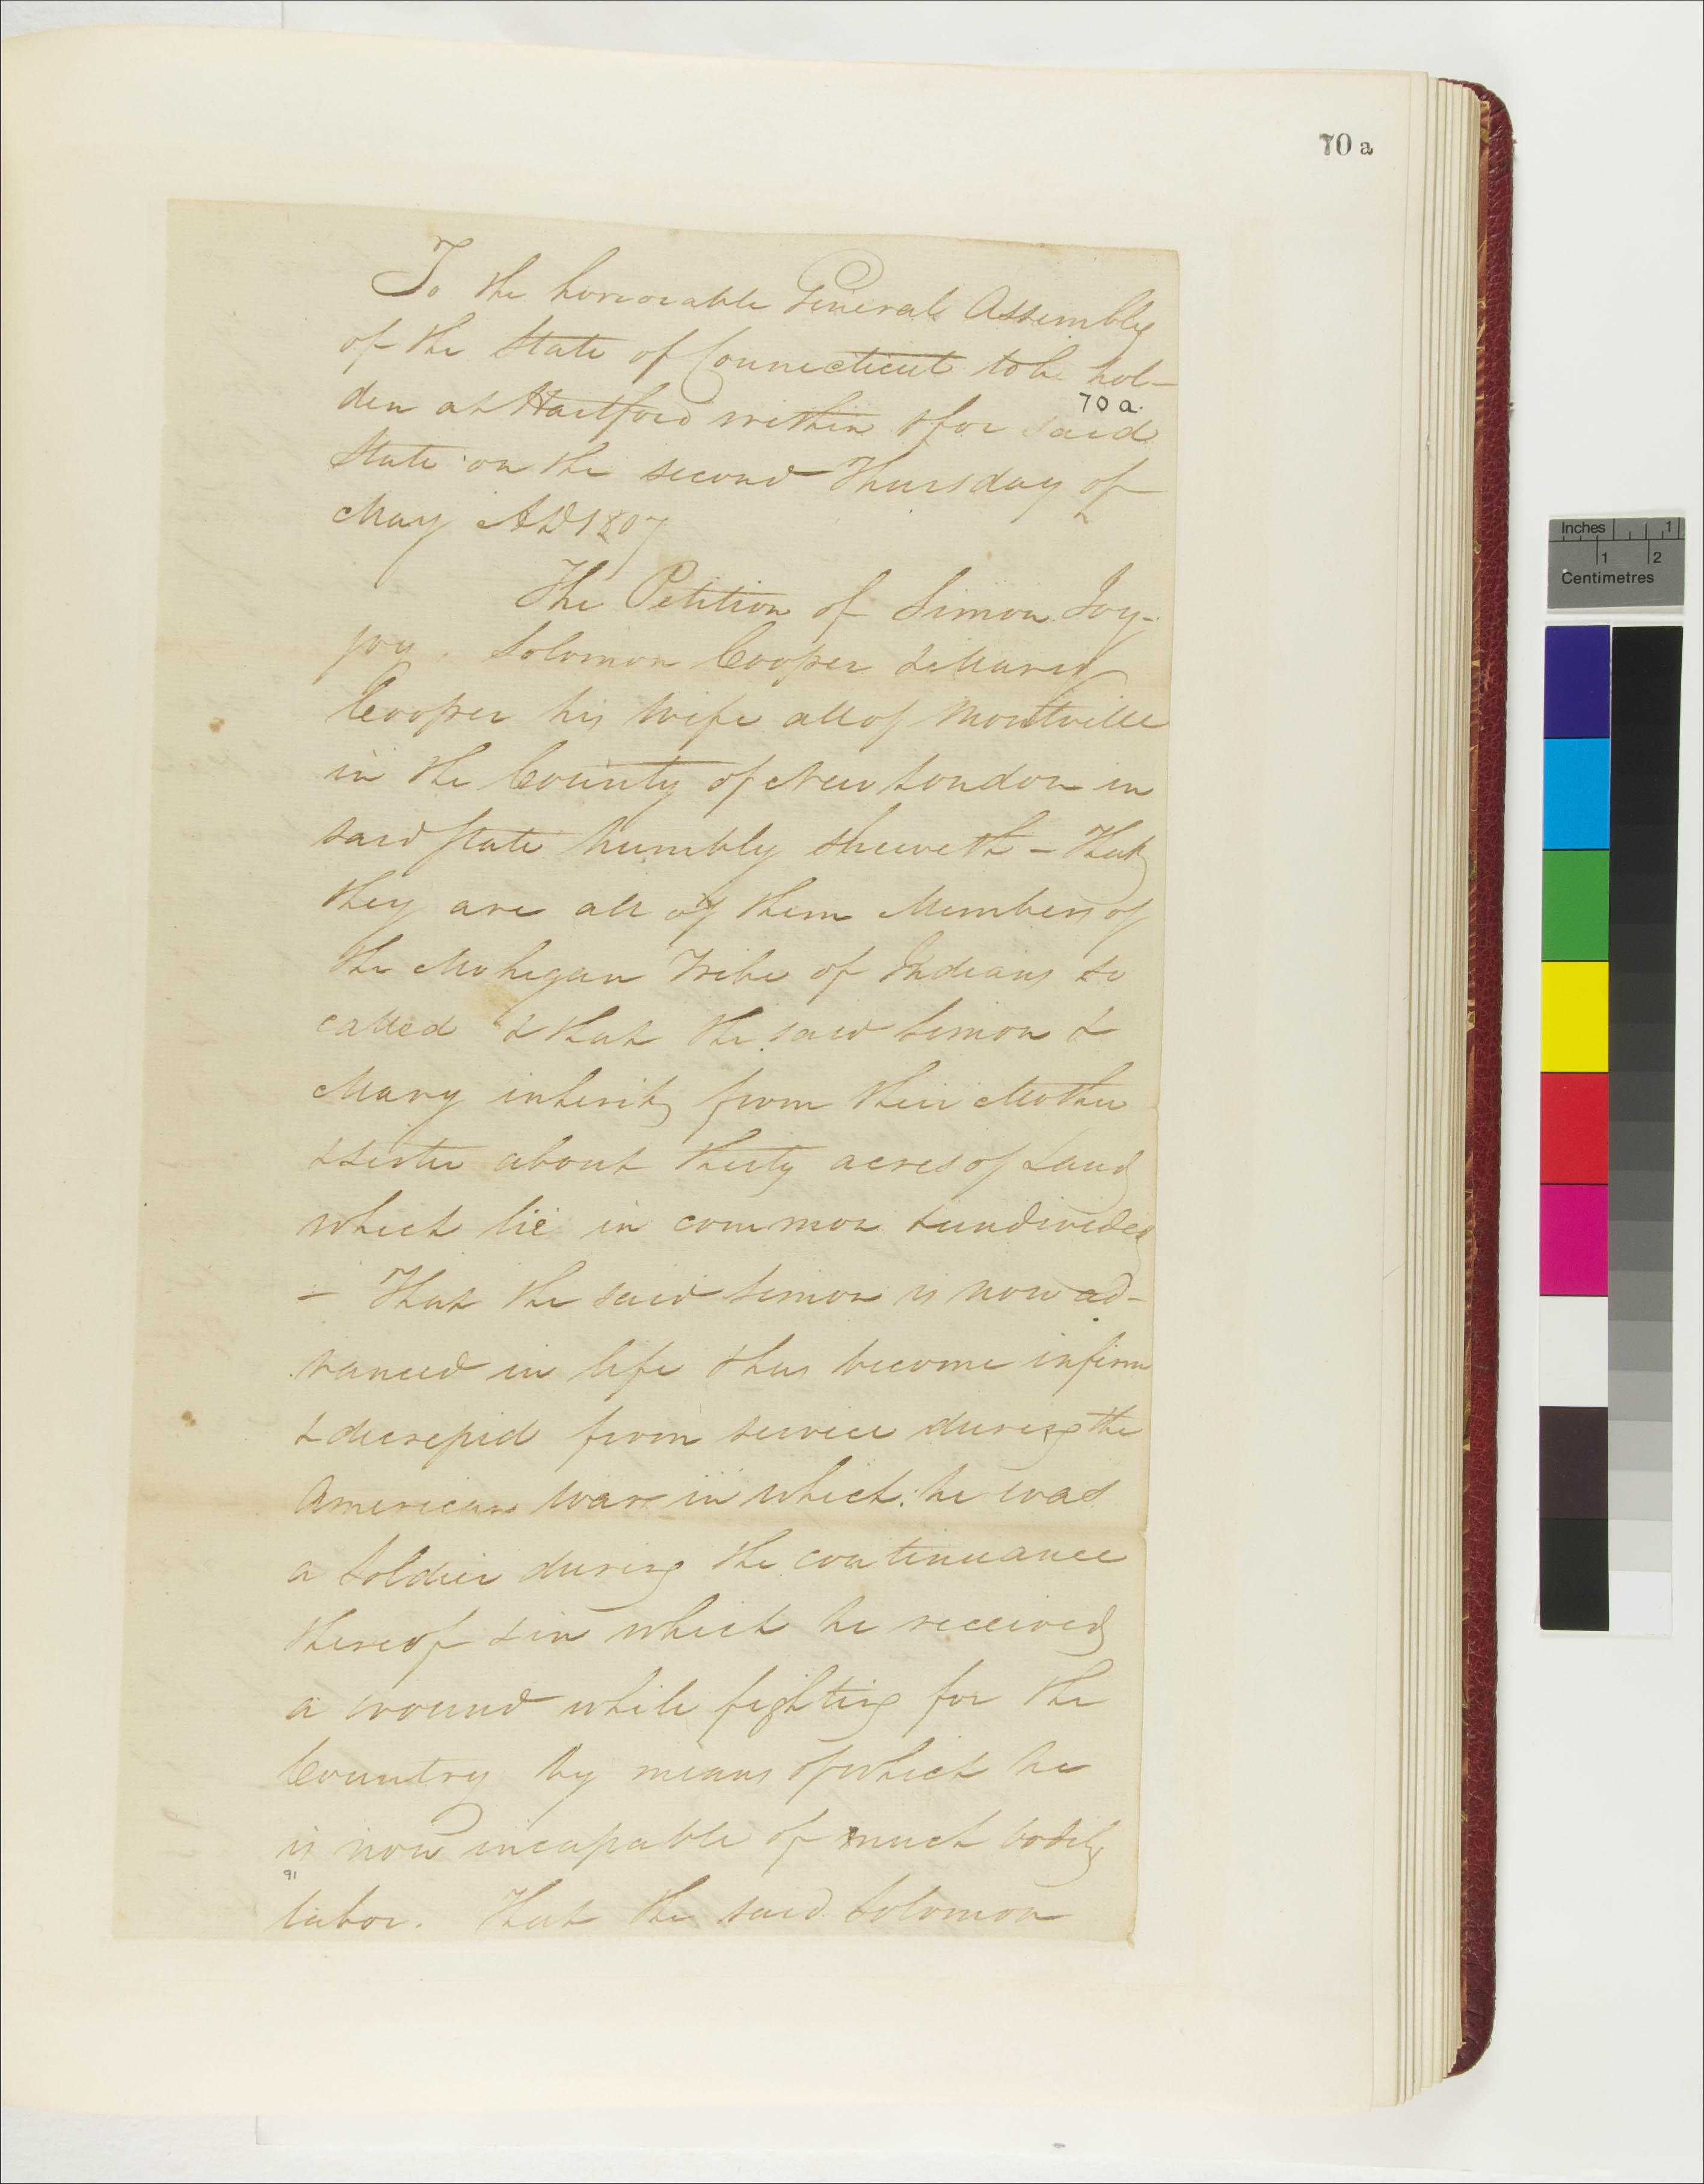 70 a
To the honourable General Assembly
of the State of Connecticut to be hol-
70 a.
den at Hartford within & for said
State on the second Thursday of
May AD 1807
The Petition of Simon Joy-
joy. Solomon Cooper & Mary
Cooper his wife all of Montville
in the County of New London in
said State humbly sheweth - That
they are all of them Members of
the Mohegan Tribe of Indians so
called & that the said Simon &
Mary inherit from their Mother
& sister about thirty acres of Land
which lie in common & undivided
- That the said Simon is now ad-
vanced in life & has become infirm
& decrepid from service during the
American war in which he was
a Soldier during the continuance
thereof & in which he received
a wound while fighting for the
Country by means of which he
is now incapable of much bodily
91
labor. That the said Solomon
Inches 1
1 2
Centimetres